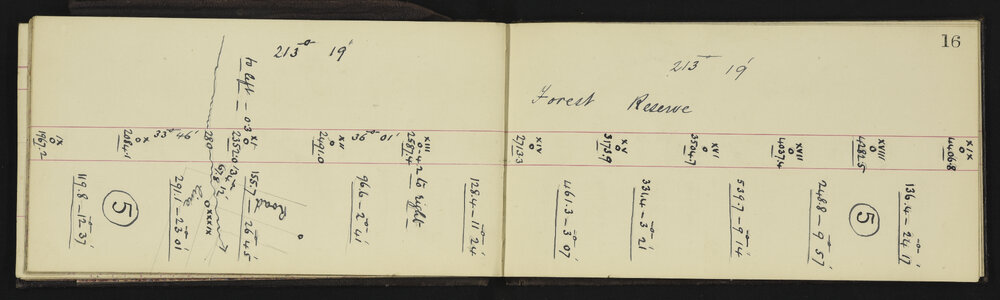 16
213° 19'
213° 19'
Forest Reserve
to left - 0.3
IX
1967.2
X
2084.1
33° 46'
280
XI
2352.0
XII
2491.0
36° 01'
XIII
2587.4
0.42 to right
XIV
2713.3
XV
3173.9
XVI
3504.7
XVII
4037.4
XVIII
4282.5
XIX
4406.8
119.8 - 12° 37'
5
291.1 - 23° 01'
XXXIX
155.7 - 26° 45'
Road
96.6 - 2° 41'
128.4 - 11° 24'
461.3 - 3° 07'
334.4 - 3° 21'
539.7 - 9° 14'
248.8 - 9° 57'
5
136.4 - 24° 17'